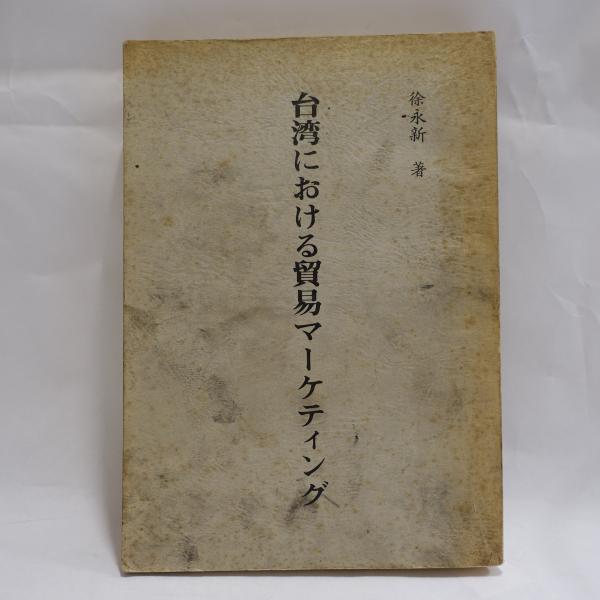 徐永新 著
台湾における貿易マーケティング